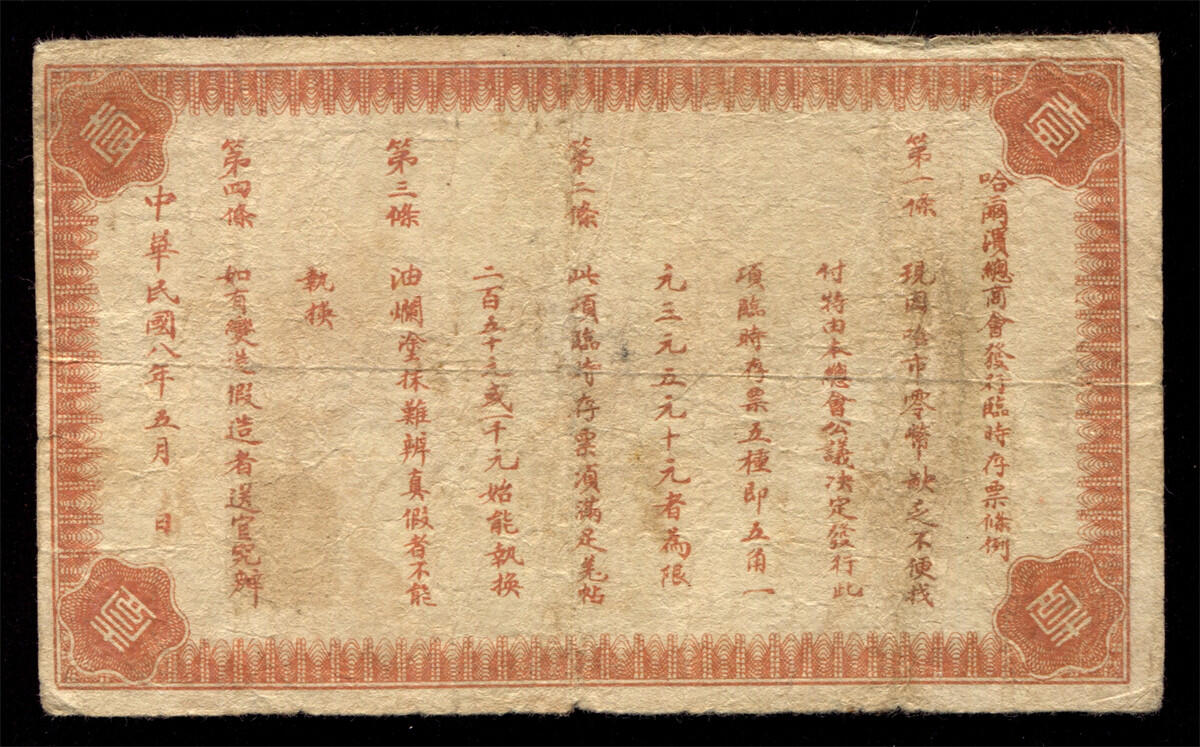 哈爾濱總商會發行臨時存票條例
第一條 現因哈市零幣缺乏不便找
付特由本總會公議决定發行此
項臨時存票五種即五角一
元三元五元十元者為限
第二條 此項臨時存票須滿足羌帖
二百五十元或一千元始能執換
第三條 油爛塗抹難辨真假者不能
執換
第四條 如有變造假造者送官究辦
中華民國八年五月 日
壹
壹
壹
壹